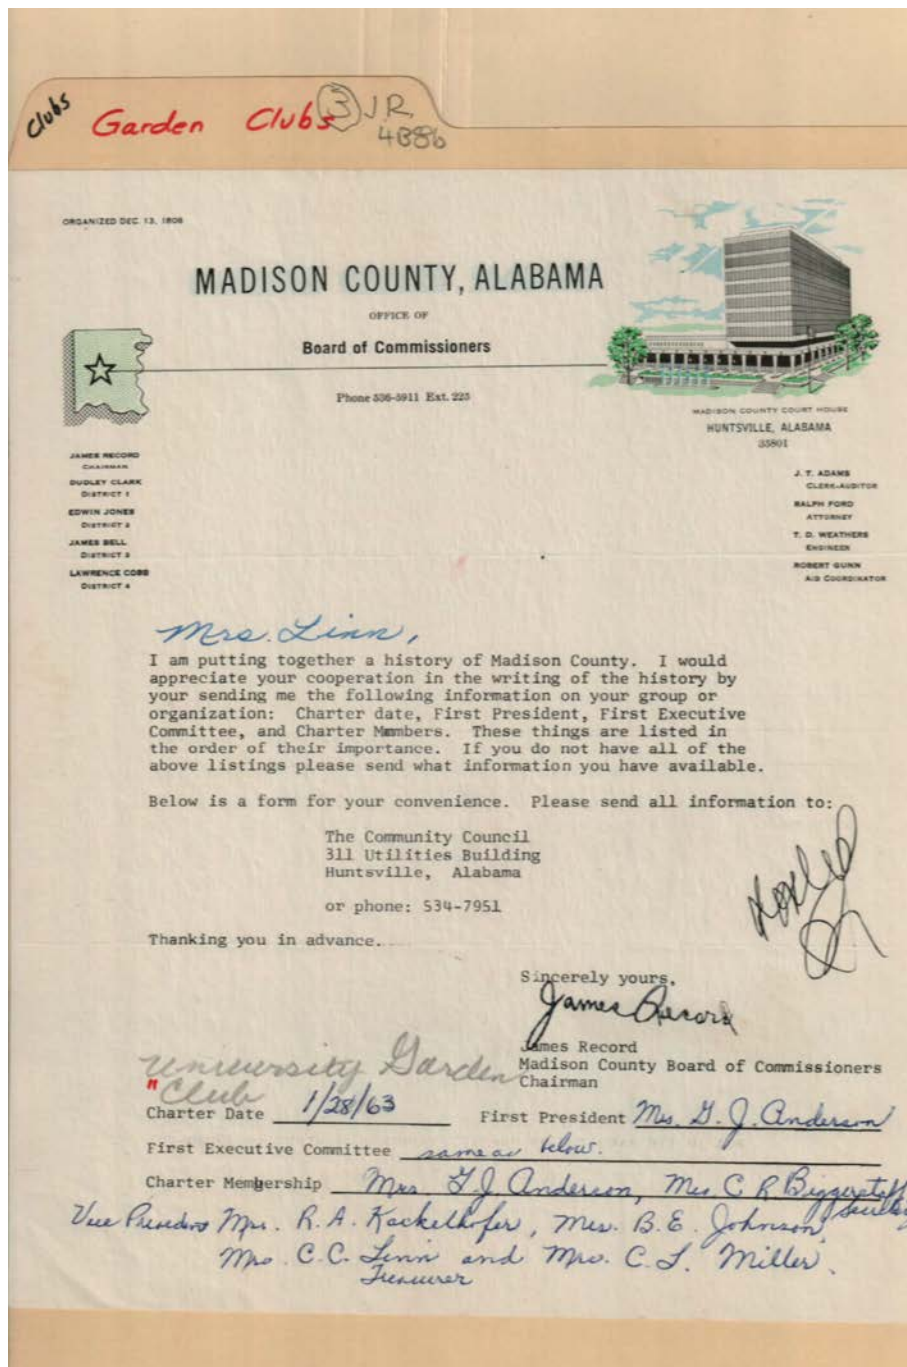 Clubs
Garden Clubs 3 J.R.
4B86
ORGANIZED DEC. 13, 1808
MADISON COUNTY, ALABAMA
OFFICE OF
Board of Commissioners
Phone 536-5911 Ext. 225
MADISON COUNTY COURT HOUSE
HUNTSVILLE, ALABAMA
35801
JAMES RECORD
CHAIRMAN
DUDLEY CLARK
DISTRICT 1
EDWIN JONES
DISTRICT 2
JAMES BELL
DISTRICT 3
LAWRENCE COBB
DISTRICT 4
J. T. ADAMS
CLERK-AUDITOR
RALPH FORD
ATTORNEY
T. D. WEATHERS
ENGINEER
ROBERT GUNN
AID COORDINATOR
Mrs. Linn,
I am putting together a history of Madison County. I would
appreciate your cooperation in the writing of the history by
your sending me the following information on your group or
organization: Charter date, First President, First Executive
Committee, and Charter Members. These things are listed in
the order of their importance. If you do not have all of the
above listings please send what information you have available.
Below is a form for your convenience. Please send all information to:
The Community Council
311 Utilities Building
Huntsville, Alabama
or phone: 534-7951
Thanking you in advance.
Sincerely yours,
James Record
James Record
Madison County Board of Commissioners
Chairman
University Garden
"Club
Charter Date 1/28/63 First President Mrs. G. J. Anderson
First Executive Committee same as below.
Charter Membership Mrs G. J. Anderson, Mrs C R Biggerstaff
Secretary
Vice President Mrs. R. A. Kackelhofer, Mrs. B. E. Johnson,
Mrs. C. C. Linn and Mrs. C. L. Miller.
Treasurer